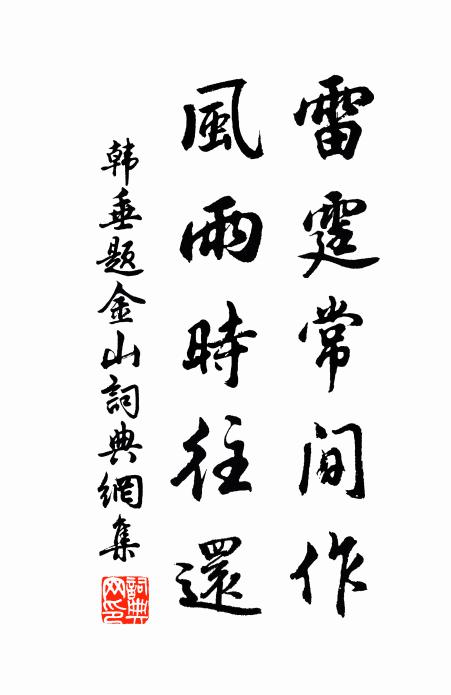 雷霆常間作
風雨時往還
韩垂题金山詞典網集
詞典
网印